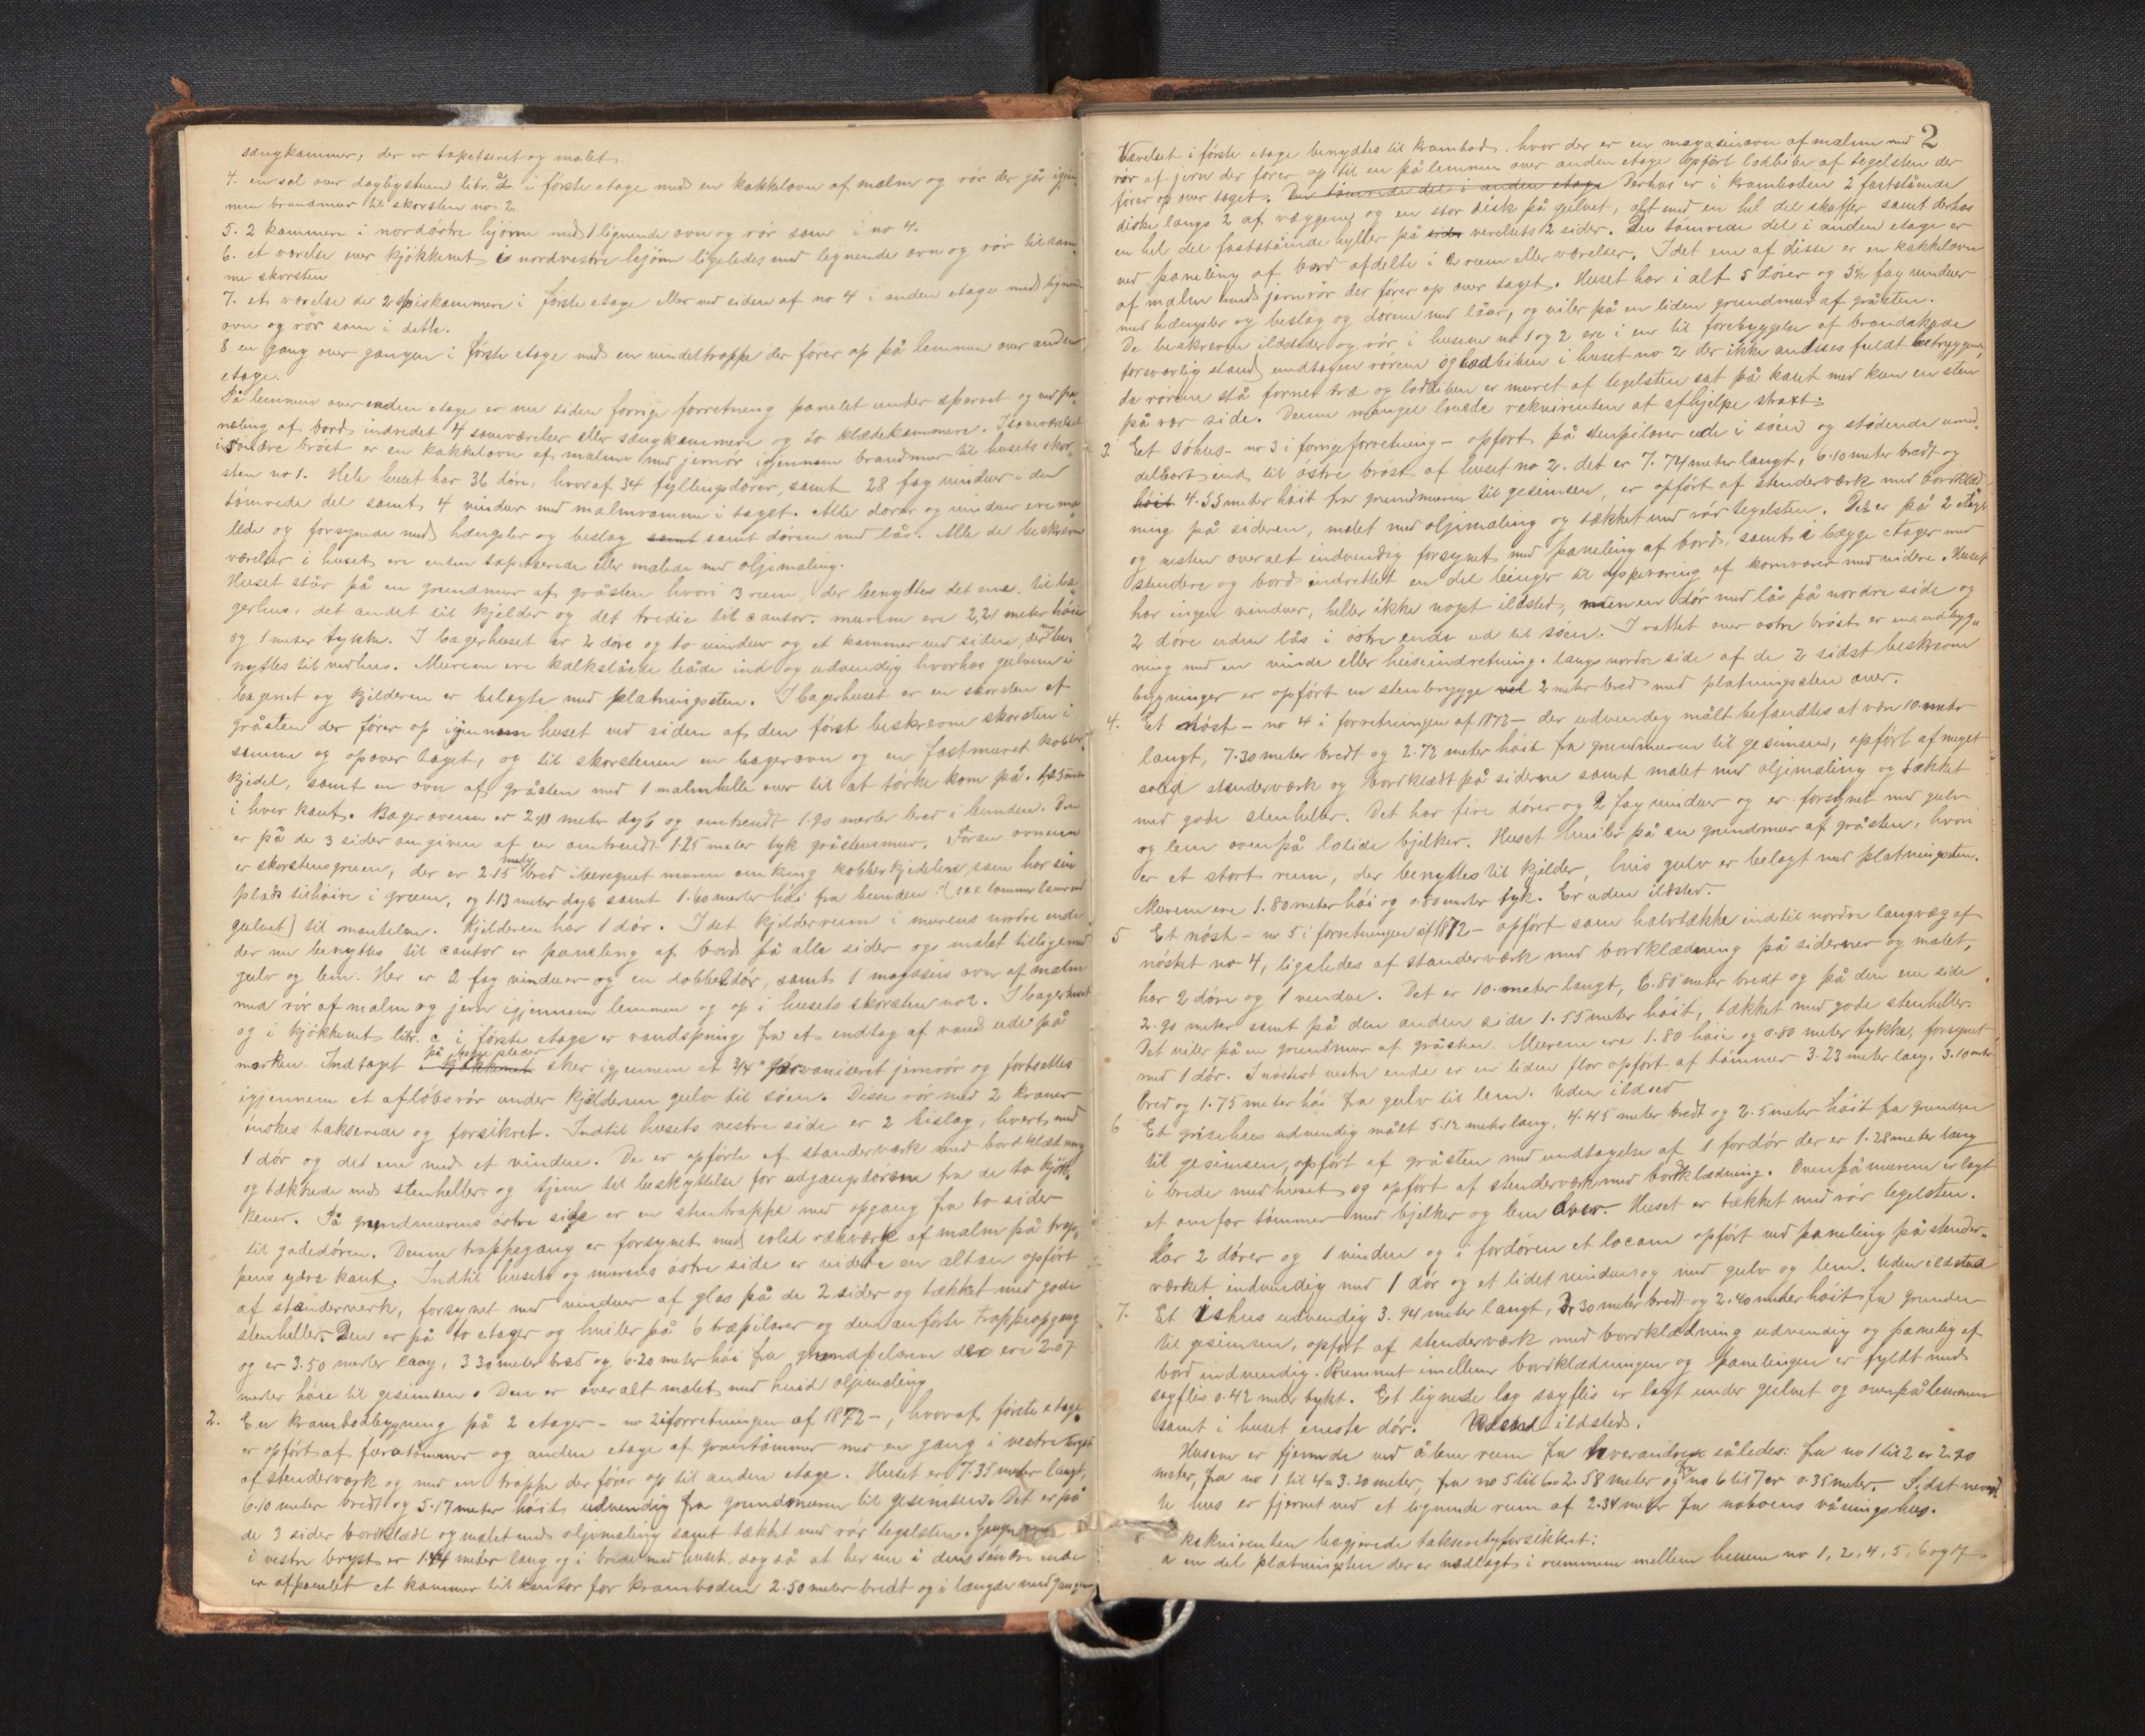 sængkammer, der er tapetseret og malet.
4. en sal over dagligstuen litr. a i første etage med en kakkelovn af malm og rør der går igjen-
nem brandmur til skorsten no 2
5. 2 kammere i nordøstre hjørne med 1 lignende ovn og rør som i no 4.
6. et værelse over kjøkkenet i nordvestre hjørne ligeledes med lignende ovn og rør til sam-
me skorsten
7. et værelse de 2 spiskammere i første etage eller ved siden af no 4 i anden etage med lignende
ovn og rør som i dette.
8 en gang over gangen i første etage med en vindeltrappe der fører op på lemmen over anden
etage.
På lemmen over anden etage er nu siden forrige forretning panelet under sperret og ved pa-
neling af bord indredet 4 soveværelser eller sængkammere og to klædekammere. I soveværelset
i søndre brøst er en kakkelovn af malm med jernrør igjennem brandmur til husets skor-
sten no 1. Hele huset har 36 døre, hvoraf 34 fyllingsdører, samt 28 fag vinduer i den
tømrede del samt 4 vinduer med malmramme i taget. Alle dører og vinduer ere ma-
lede og forsynede med hængsler og beslag samt samt dørene med lås. Alle de beskrevne
værelser i huset ere enten tapetserede eller malede med oljemaling.
Huset står på en grundmur af gråsten hvori 3 rum, der benyttes det ene til ba-
gerhus, det andet til kjelder og det tredie til contor. murene ere 2,21 meter høie
og 1 meter tykke. I bagerhuset er 2 døre og to vinduer og et kammer ved siden, der nu be-
nyttes til vedhus. Murene ere kalkslåede både ind og udvendig hvorhos gulvene i
bageriet og kjelderen er belagte med platningssten. I bagerhuset er en skorsten af
gråsten der fører op igjennem huset ved siden af den først beskrevne skorsten i
samme og op over taget, og til skorstenen en bagerovn og en fastmuret kobber-
kjedel, samt en ovn af gråsten med 1 malmhelle over til at tørke korn på. 1.25 meter
i hver kant. Bagerovnen er 2,10 meter dyb og omtrendt 1.90 meter bred i bunden. Den
er på de 3 sider omgiven af en omtrendt 1.25 meter tyk gråstensmur. Foran ovnene
er skorstensgruen, der er 2.15 meter bred iberegnet muren omkring kobberkjedelen som har sin
plads tilhøire i gruen, og 1.13 meter dyb samt 1.60 meter høi fra bunden (sex tommer lavere end
gulvet) til mantelen. Kjelderen har 1 dør. I det kjelderrum i murens nordre ende
der nu benyttes til contor er paneling af bord på alle sider og malet tilligemed
gulv og lem. Her er 2 fag vinduer og en dobbeldør, samt 1 magasins ovn af malm
med rør af malm og jern igjennem lemmen og op i husets skorsten no 2. I bagerhuset
og i kjøkkenet litr. c i første etage er vandspring fra et indtag af vand ude på
marken. Indtaget på begge steder i kjøkkenet sker igjennem et 3/4" galvaniseret jernrør og fortsættes
igjennem et afløbsrør under kjelderens gulv til søen. Disse rør med 2 kraner
ønskes takserede og forsikret. Indtil husets vestre side er 2 bislag, hvert med
1 dør og det ene med et vindue. De er opførte af stenderværk med bordklædning
og tækkede med stenheller og tjener til beskyttelse for udgangsdørene fra de to kjøk-
kener. På grundmurens østre side er en stentrappe med opgang fra to sider
til gadedøren. Denne trappegang er forsynet med solid rækværk af malm på trap-
pens ydre kant. Indtil husets og murens østre side er videre en altan opført
af stenderverk, forsynet med vinduer af glas på de 2 sider og tækket med gode
stenheller. Den er på to etager og hviler på 6 træpilarer og den anførte trappeopgang
og er 3.50 meter lang, 3.30 meter bred og 6.20 meter høi fra grundpilarene der ere 2.07
meter høie til gesimsen. Den er overalt malet med hvid oljemaling
2. En krambodbygning på 2 etager – no 2 i forretningen af 1872 –, hvoraf første etage
er opført af furutømmer og anden etage af grantømmer med en gang i vestre bryst
af stenderværk og med en trappe der fører op til anden etage. Huset er 7.35 meter langt,
6.10 meter bredt og 5.17 meter høit udvendig fra grundmuren til gesimsen. Det er på
de 3 sider bordklædt og malet med oljemaling samt tækket med rør tegelsten. Gangen
i vestre bryst er 1.44 meter lang og i brede med huset, dog så at her nu i dens søndre ende
er afpanelet et kammer til kontor for kramboden 2.50 meter bredt og i længde med gangen
2
Værelset i første etage benyttes til krambod, hvor der er en magasinovn af malm med
rør af jern der fører op til en på lemmen over anden etage opført lodbiben af tegelsten der
fører op over taget. Den tømrede del i anden etage Derhos er i kramboden 2 faststående
diske langs 2 af væggene og en stor disk på gulvet, alt med en hel del skuffer samt derhos
en hel del faststående hylder på sider verelsets 2 sider. Den tømrede del i anden etage er
ved paneling af bord afdelte i 2 rum eller værelser. I det ene af disse er en kakkelovn
af malm med jernrør der fører op over taget. Huset har i alt 5 dører og 5½ fag vinduer
med hængsler og beslag og dørene med låse, og hviler på en liden grundmur af gråsten.
De beskrevne ildsteder og rør i husene no 1 og 2 ere i en til forebyggelse af brandskade
forsvarlig stand undtagen rørene og lodbiben i huset no 2 der ikke ansees fuldt betryggende,
da rørene stå fornær træ og lodbiben er muret af tegelsten sat på kant med kun en sten
på vær side. Denne mangel lovede rekvirenten at afhjelpe straxt.
3. Et søhus – no 3 i forrige forretning – opført på stenpilarer ude i søen og stødende umid-
delbart ind til østre brøst af huset no 2. det er 7.74 meter langt, 6.10 meter bredt og
høit 4.55 meter høit fra grundmuren til gesimsen, er opført af stenderværk med bordklæd-
ning på siderne, malet med oljemaling og tækket med rør tegelsten. Det er på 2 etager
og nesten overalt indvendig forsynet med paneling af bord, samt i begge etager med
stendere og bord indrettet en del binger til opbevaring af kornvarer med videre. Huset
har ingen vinduer, heller ikke noget ildsted, men en dør med lås på nordre side og
2 døre uden lås i østre ende ud til søen. I rottet over østre brøst er en udbyg-
ning med en vinde eller heiseindretning. langs nordre side af de 2 sidst beskrevne
bygninger er opført en stenbrygge ved 2 meter bred med platningssten over.
4. Et nøst – no 4 i forretningen af 1872 – der udvendig målt befandtes at være 10 meter
langt, 7.30 meter bredt og 2.72 meter høit fra grundmuren til gesimsen, opført af meget
solid stenderværk og bordklædt på siderne samt malet med oljemaling og tækket
med gode stenheller. Det har fire dører og 2 fag vinduer og er forsynet med gulv
og lem ovenpå solide bjelker. Huset hviler på en grundmur af gråsten, hvori
er et stort rum, der benyttes til kjelder, hvis gulv er belagt med platningssten.
Murene ere 1.80 meter høi og 0.80 meter tyk. Er uden ildsted.
5 Et nøst – no 5 i forretningen af 1872 – opført som halvtække indtil nordre langvæg af
nøstet no 4, ligeledes af stenderværk med bordklædning på siderne og malet,
har 2 døre og 1 vindue. Det er 10 meter langt, 6.80 meter bredt og på den ene side
2.90 meter samt på den anden side 1.55 meter høit, tækket med gode stenheller.
Det viler på en grundmur af gråsten. Murene ere 1.80 høie og 0.80 meter tykke, forsynet
med 1 dør. I nøstets vestre ende er en liden flor opført af tømmer 3.23 meter lang, 3.10 meter
bred og 1.75 meter høi fra gulv til lem. Uden ildsted
6 Et grisehus udvendig målt 5.12 meter lang, 4.45 meter bredt og 2.5 meter høit fra grunden
til gesimsen, opført af gråsten med undtagelse af 1 fordør der er 1.28 meter lang
i brede med huset og opført af stenderværk med bordklædning. Ovenpå muren er lagt
et omfar tømmer med bjelker og lem over. Huset er tækket med rør tegelsten.
har 2 dører og 1 vindue og i fordøren et locum opført ved paneling på stender-
værket indvendig med 1 dør og et lidet vindue og med gulv og lem. Uden ildsted
7. Et ishus udvendig 3.94 meter langt, 3.30 meter bredt og 2.40 meter høit fra grunden
til gesimsen, opført af stenderværk med bordklædning udvendig og paneling af
bord indvendig. Rummet imellem bordklædningen og panelingen er fyldt med
sagflis 0.42 meter tykt. Et lignende lag sagflis er lagt under gulvet og ovenpå lemmen
samt i huset eneste dør. Uden ildsted.
Husene er fjernede ved åbne rum fra hverandre således: fra no 1 til 2 er 2.20
meter, fra no 1 til 4 = 3.20 meter, fra no 5 til 6 = 2.58 meter og fra no 6 til 7 er 0.35 meter. Sidst nevn-
te hus er fjernet ved et lignende rum af 2.34 meter fra naboens våningshus.
8 Rekvirenten begjerede takseret og forsikkret:
a en del platningssten der er nedlagt i rummene mellem husene no 1, 2, 4, 5, 6 og 7